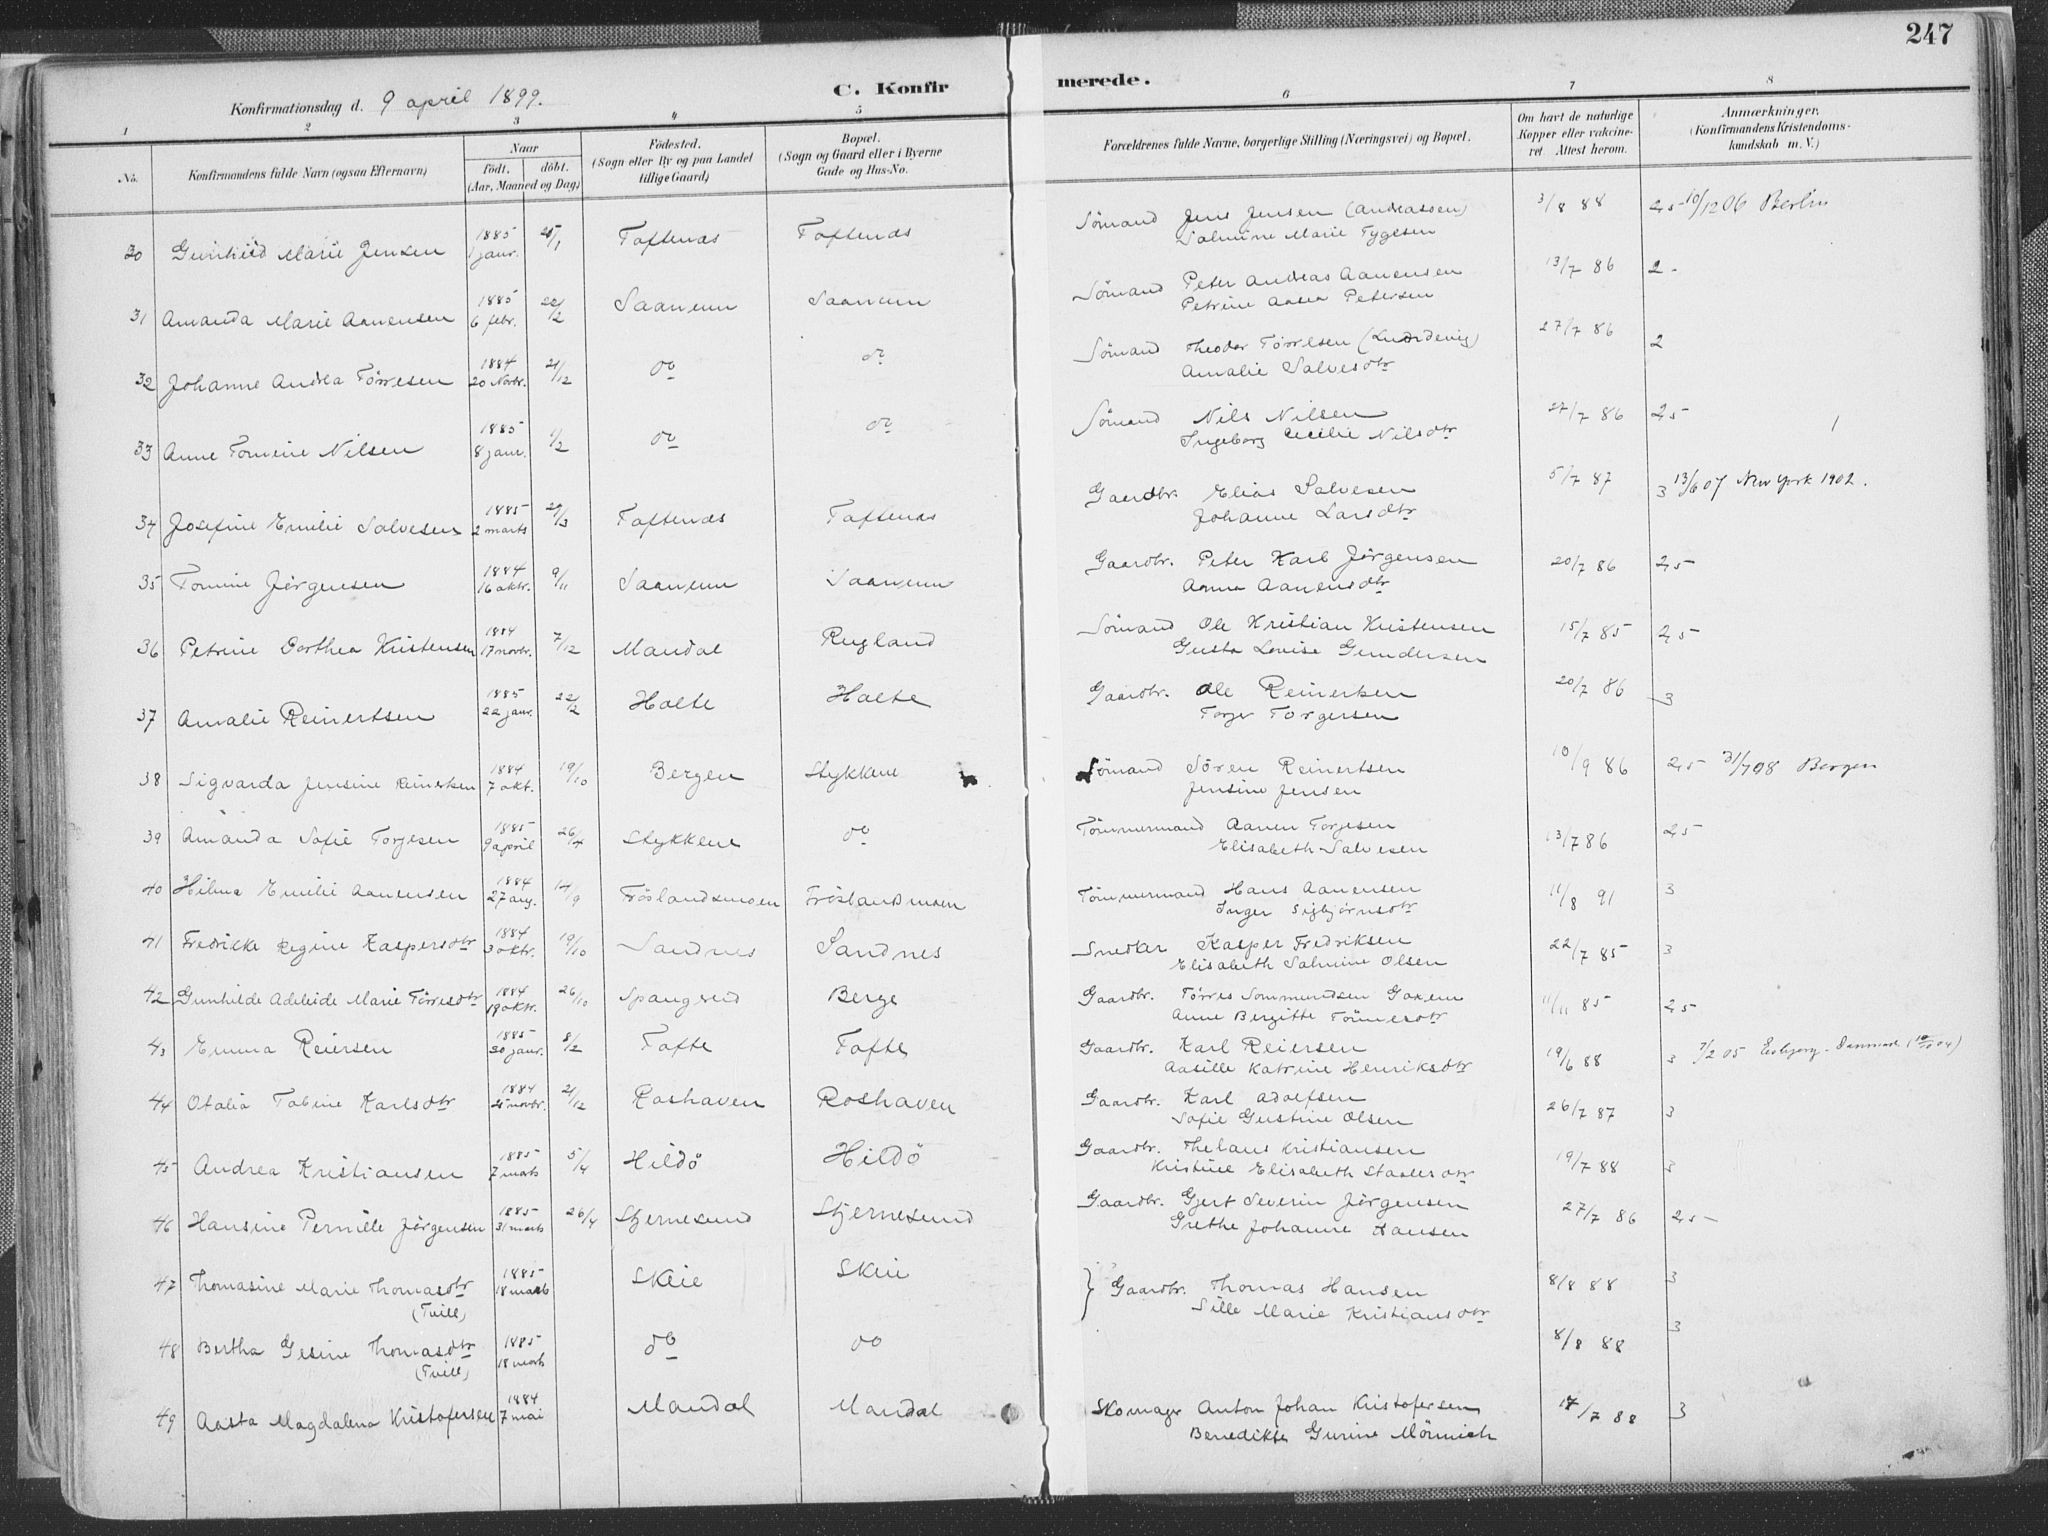 247
Konfirmationsdag d. 9 april 1899.
C. Konfirmerede.
1 2 3 4 5 6 7 8
No. Konfirmandens fulde Navn (ogsaa Efternavn) Naar født. døbt. (Aar, Maaned og Dag) Fødested. (Sogn eller By og paa Landet tillige Gaard) Bopæl. (Sogn og Gaard eller i Byerne Gade og Hus-No. Forældrenes fulde Navne, borgerlige Stilling (Næringsvei) og Bopæl. Om havt de naturlige Kopper eller vakcineret. Attest herom. Anmærkninger. (Konfirmandens Kristendomskundskab m. V.)
30 Gunhild Marie Jensen 1885 1 janr. 25/1 Toftenæs Toftenæs Sömand Jens Jensen (Andreassen) 3/8 88 2,5 10/12 06 Berlin
Salmine Marie Tygesen
31 Amanda Marie Aanensen 1885 6 febr. 22/2 Saanum Saanum Sömand Peter Andreas Aanensen 13/7 86 2-
Petrine Aasea Petersen
32 Johanne Andrea Törresen 1884 20 Novbr. 21/12 do do Sömand Theodor Törresen 27/7 86 2
Amalie Salvesdtr
33 Anne Tomine Nilsen 1885 8 janr. 1/2 do do Sömand Nils Nilsen 27/7 86 2,5
Ingeborg Cecilie Nilsdtr
34 Josefine Emilie Salvesen 1885 2 marts 29/3 Toftenæs Toftenæs Gaardbr. Elias Salvesen 5/7 87 3 13/6 07 New York 1902.
Johanne Larsdtr
35 Tomine Jörgensen 1884 16 oktr. 9/11 Saanum Saanum Gaardbr. Peter Karl Jörgensen 20/7 86 2,5
Anna Aanensdtr
36 Petrine Dorthea Kristensen 1884 17 novbr. 7/12 Mandal Rugland Sömand Ole Kristian Kristensen 15/7 85 2,5
Gusta Lovise Gundersen
37 Amalie Reinertsen 1885 22 janr. 22/2 Holte Holte Gaardbr. Ole Reinertsen 20/7 86 3
Torgersen
38 Sigvarda Jensine Reinertsen 1884 7 okt. 19/10 Bergen Stykkene Sömand Sören Reinertsen 10/9 86 2,5 31/7 08 Bergen
Jensine Jensen
39 Amanda Sofie Torjesen 1885 9 april 26/4 Stykkene do Tömmermand Aanen Torjesen 13/7 86 2,5
Elisabeth Salvesen
40 Hilma Emilie Aanensen 1884 27 aug. 14/9 Fröslandsmoen Fröslandsmoen Tömmermand Hans Aanensen 11/8 91 3
Inger Sigbjörnsdtr
41 Fredrikke Regine Kaspersdtr 1884 3 oktr. 19/10 Sandnes Sandnes Snedker Kasper Fredriksen 22/7 85 3
Elisabeth Salmine Olsen
42 Gunhilde Adeleide Marie Törresdtr 1884 19 oktr. 26/10 Spangereid Berge Gaardbr. Törres Sommundsen 11/11 85 2,5
Anne Bergitte Tönnesdtr
43 Emma Reiersen 1885 30 janr. 8/2 Tofte Tofte Gaardbr. Karl Reiersen 19/6 88 3 7/2 05 Esbjerg - Danmark
Aasille Katrine Henriksdtr
44 Otalia Tobine Karlsdtr 1884 25 novbr. 21/12 Roshaven Roshaven Gaardbr. Karl Adolfsen 26/7 87 3
Sofie Gustine Olsen
45 Andrea Kristiansen 1885 7 marts 5/4 Hildö Hildö Gaardbr. Kristiansen 19/7 88 3
Kristine Elisabeth
46 Hansine Pernille Jörgensen 1885 31 marts 26/4 Stjernesund Stjernesund Gaardbr. Gjert Severin Jörgensen 27/7 86 2,5
Grethe Johanne Hansen
47 Thomasine Marie Thomasdtr 1885 18 marts Skeie Skeie } Gaardbr. Thomas Hansen 8/8 88 3
(Tvill) Sille Marie Kristiansdtr
48 Bertha Gesine Thomasdtr 1885 18 marts do do 8/8 88 3
(Tvill)
49 Aasta Magdalena Kristofersen 1884 7 mai Mandal Mandal Skomager Anton Johan Kristofersen 17/7 88 3
Benedikte Gurine Mönnich